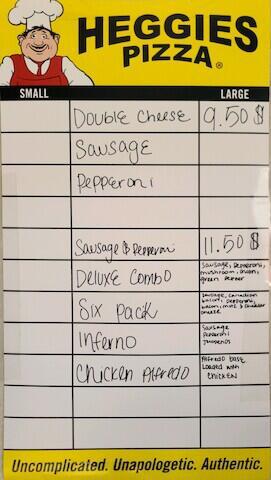 HEGGIES
PIZZA®
SMALL LARGE
Double Cheese 9.50 $
Sausage
Pepperoni
Sausage & Pepperoni 11.50 $
Deluxe Combo
Sausage, Pepperoni,
mushroom, onion,
green pepper
Six Pack
Sausage, Canadian
bacon, Pepperoni,
bacon, mozz & cheddar
cheese
Inferno
Sausage
Pepperoni
Jalapenos
Chicken Alfredo
Alfredo base
Loaded with
Chicken
Uncomplicated. Unapologetic. Authentic.